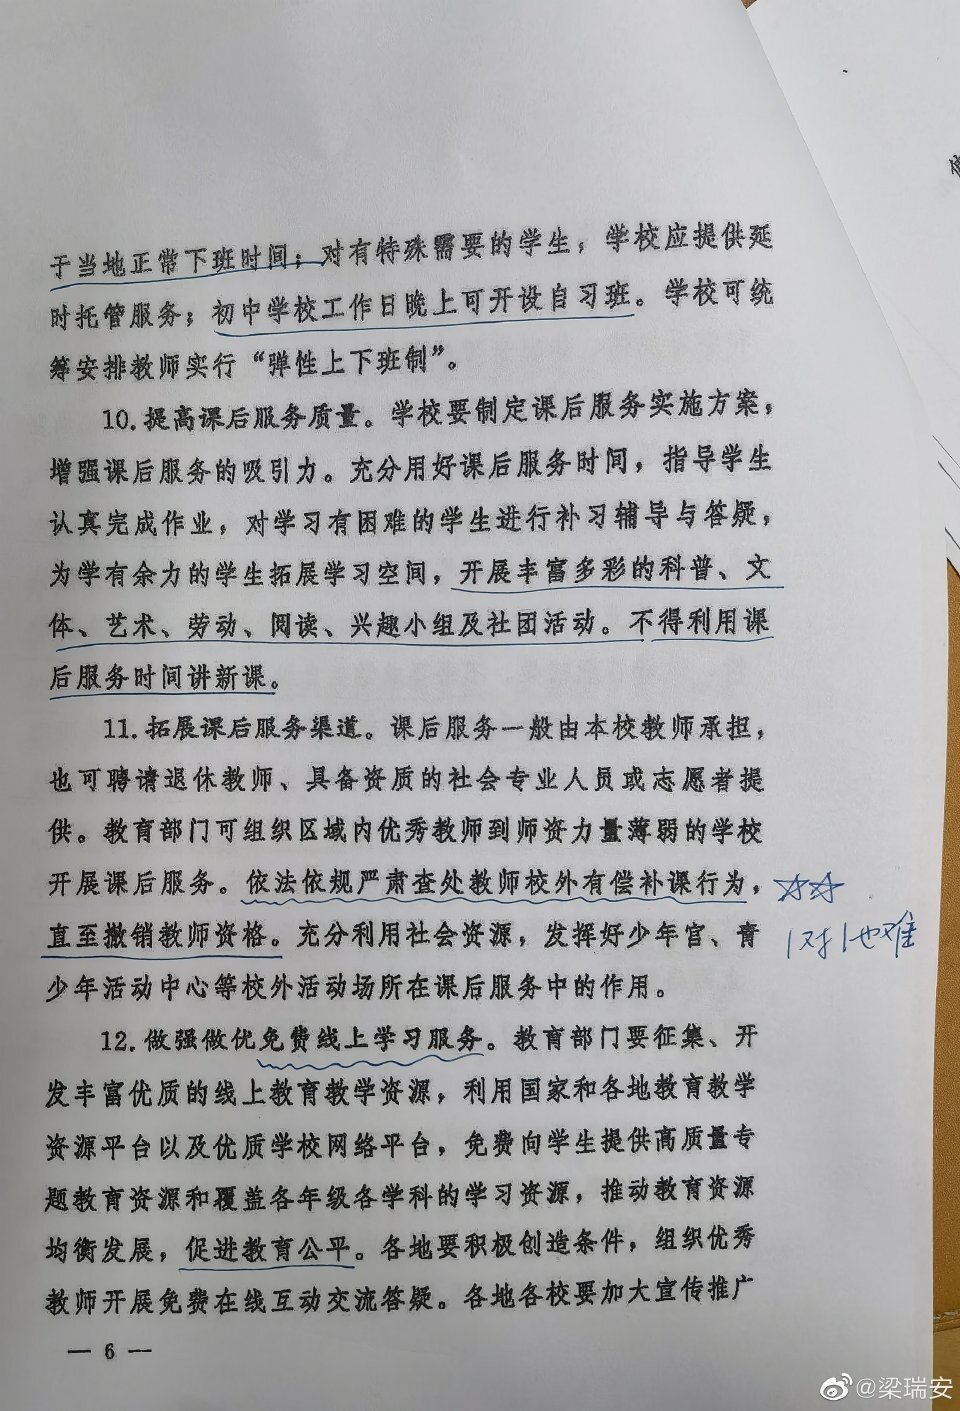 于当地正常下班时间；对有特殊需要的学生，学校应提供延
时托管服务；初中学校工作日晚上可开设自习班。学校可统
筹安排教师实行“弹性上下班制”。
10.提高课后服务质量。学校要制定课后服务实施方案，
增强课后服务的吸引力。充分用好课后服务时间，指导学生
认真完成作业，对学习有困难的学生进行补习辅导与答疑，
为学有余力的学生拓展学习空间，开展丰富多彩的科普、文
体、艺术、劳动、阅读、兴趣小组及社团活动。不得利用课
后服务时间讲新课。
11.拓展课后服务渠道。课后服务一般由本校教师承担，
也可聘请退休教师、具备资质的社会专业人员或志愿者提
供。教育部门可组织区域内优秀教师到师资力量薄弱的学校
开展课后服务。依法依规严肃查处教师校外有偿补课行为，
直至撤销教师资格。充分利用社会资源，发挥好少年宫、青
1对1也难
少年活动中心等校外活动场所在课后服务中的作用。
12.做强做优免费线上学习服务。教育部门要征集、开
发丰富优质的线上教育教学资源，利用国家和各地教育教学
资源平台以及优质学校网络平台，免费向学生提供高质量专
题教育资源和覆盖各年级各学科的学习资源，推动教育资源
均衡发展，促进教育公平。各地要积极创造条件，组织优秀
教师开展免费在线互动交流答疑。各地各校要加大宣传推广
— 6 —
@梁瑞安